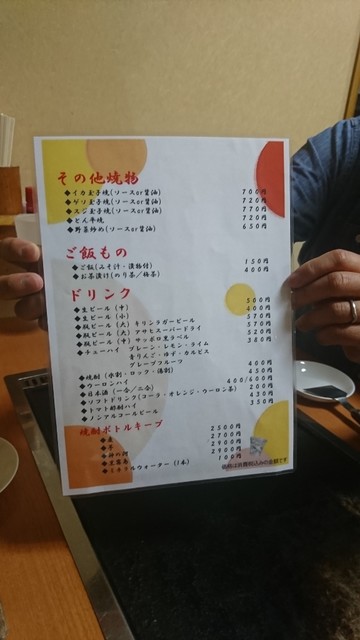 その他焼物
◆イカ玉子焼(ソースor醤油) 700円
◆ゲソ玉子焼(ソースor醤油) 720円
◆スジ玉子焼(ソースor醤油) 770円
◆とん平焼 720円
◆野菜炒め(ソースor醤油) 650円
ご飯もの
◆ご飯(みそ汁・漬物付) 150円
◆お茶漬け(のり茶/梅茶) 400円
ドリンク
◆生ビール(中) 500円
◆生ビール(小) 400円
◆瓶ビール(大)キリンラガービール 570円
◆瓶ビール(大)アサヒスーパードライ 570円
◆瓶ビール(中)サッポロ黒ラベル 520円
◆チューハイ プレーン・レモン・ライム 380円
青りんご・ゆず・カルピス
グレープフルーツ
◆焼酎(水割・ロック・湯割) 400円
◆ウーロンハイ 450円
◆日本酒(一合/二合) 400/600円
◆ソフトドリンク(コーラ・オレンジ・ウーロン茶) 200円
◆トマト酎ハイ 430円
◆ノンアルコールビール 350円
焼酎ボトルキープ
◆麦 2500円
◆芋 2700円
◆神の河 2900円
◆黒霧島 2900円
◆ミネラルウォーター(1本) 100円
価格は消費税込みの金額です